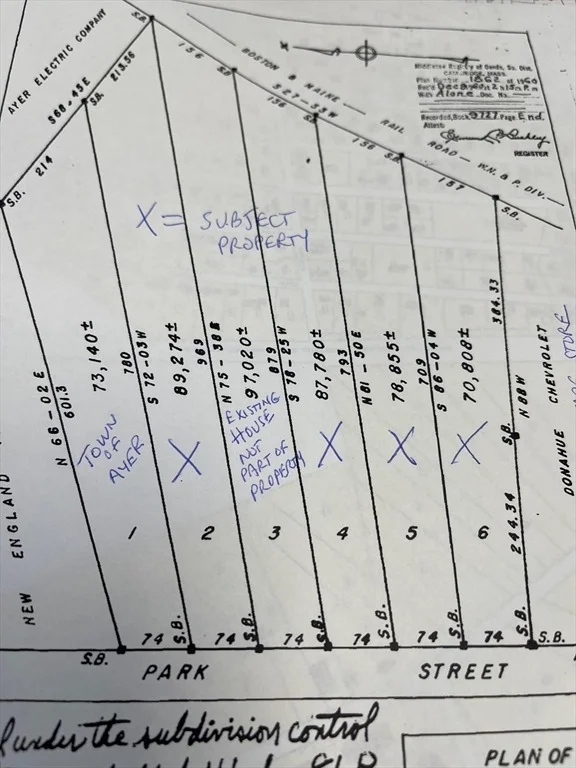 AYER ELECTRIC COMPANY
S68.45E
213.36
S.B.
S.B.
214
S.B.
156
BOSTON & MAINE — RAIL ROAD — W.N. & P. DIV. —
S27-33W
156
S.B.
156
S.B.
157
S.B.
Middlesex Registry of Deeds, So. Dist.
CAMBRIDGE, MASS.
Plan Number 1862 of 1960
Rec'd Dec 9 1960 at 2h 15m P.m
With Alone Doc. No.
Recorded, Book 9727 Page End.
Attest:
REGISTER
X = SUBJECT
PROPERTY
N 66-02E
601.3
73,140±
780
S 72-03W
89,274±
969
N 75-38E
97,020±
879
S 78-25W
87,780±
793
N81-50E
78,855±
709
S 86-04W
70,808±
384.33
S.B.
N88W
244.34
DONAHUE CHEVROLET
STORE
NEW ENGLAND
TOWN
OF
AYER
X
EXISTING
HOUSE
NOT
PART OF
PROPERTY
X
X
X
1
2
3
4
5
6
S.B.
74
S.B.
74
S.B.
74
74
S.B.
74
S.B.
74
S.B.
S.B.
PARK STREET
under the subdivision control
PLAN OF